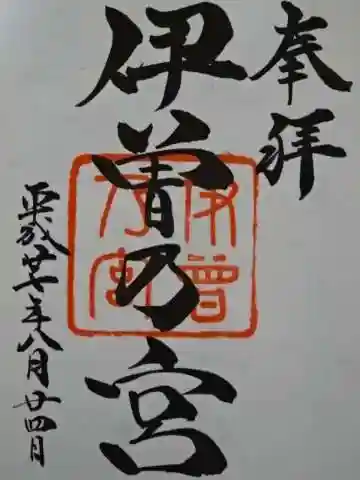 奉拝
伊曽乃宮
伊曽乃宮
平成廿七年八月廿四日